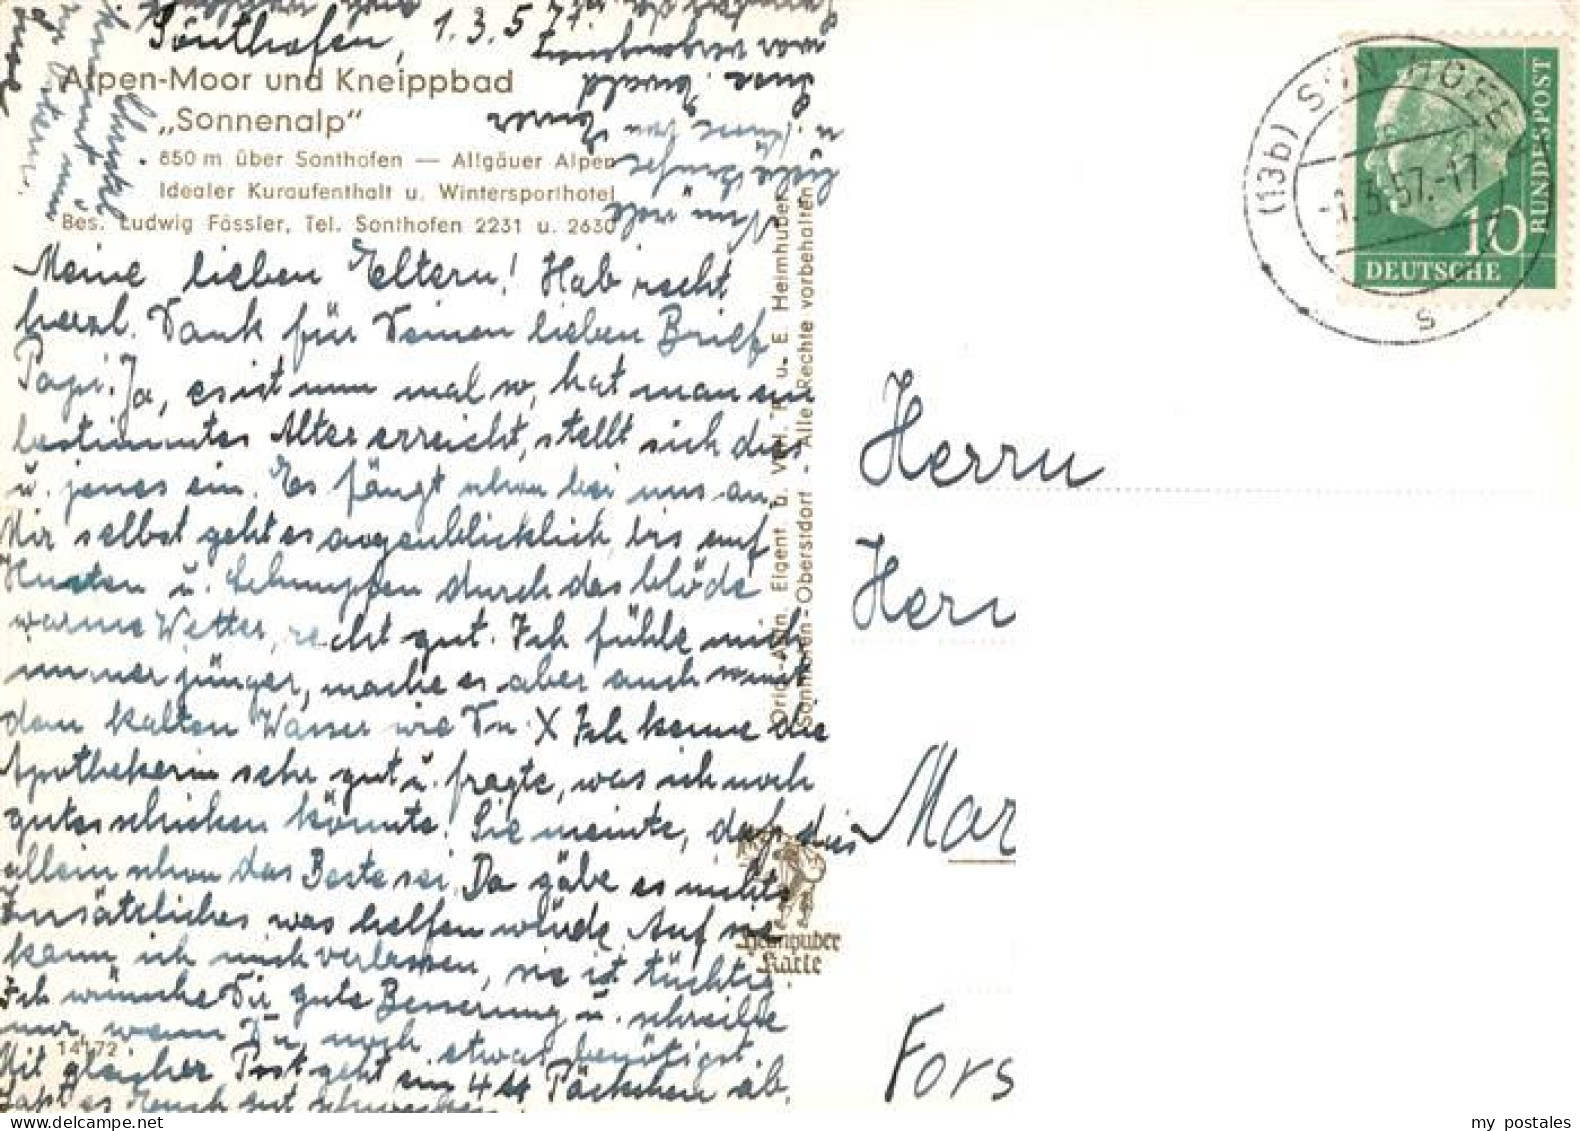 Sonthofen, 1.3.57
Alpen-Moor und Kneippbad
„Sonnenalp"
850 m über Sonthofen — Allgäuer Alpen
Idealer Kuraufenthalt u. Wintersporthotel
Bes. Ludwig Fässler, Tel. Sonthofen 2231 u. 2630
Meine lieben Eltern! Hab recht
herzl. Dank für Deinen lieben Brief
Papi. Ja, es ist nun mal so, hat man ein
bestimmtes Alter erreicht, stellt sich dies
u. jenes ein. Es fängt schon bei uns an.
Mir selbst geht es augenblicklich, bis auf
Husten u. Schnupfen durch das blöde
warme Wetter, recht gut. Ich fühle mich
immer jünger, mache es aber auch mit
dem kalten Wasser wie Du. X Ich kenne die
Apothekerin sehr gut u. fragte, was ich noch
gutes schicken könnte! Sie meinte, daß dies
allein schon das Beste sei. Da gäbe es nichts
zusätzliches was helfen würde. Auf sie
kann ich mich verlassen, sie ist tüchtig.
Ich wünsche Dir gute Besserung u. schreibe
nur, wenn Du noch etwas benötigst.
Mit gleicher Post geht ein Päckchen ab.
Laßt es Euch gut schmecken.
14172
Heimhuber
Karte
(13b) SONTHOFEN
-1.3.57.-17
s
10
DEUTSCHE
BUNDESPOST
Herrn
Herr
Mar
Fors
my postales